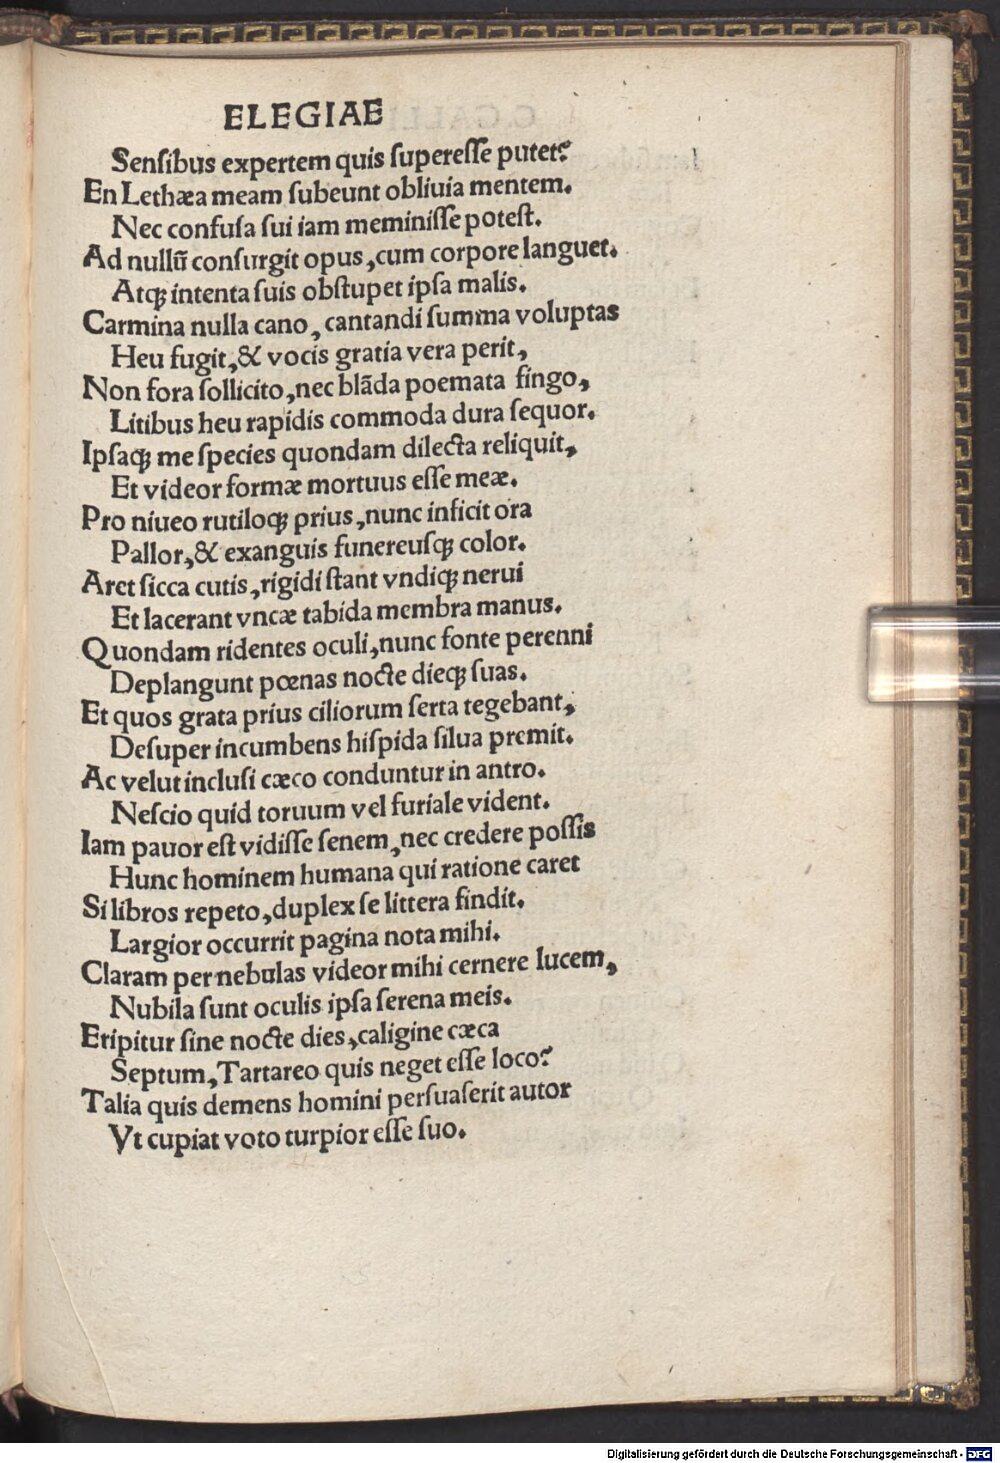 ELEGIAE
Senſibus expertem quis ſupereſſe putet?
En Lethæa meam ſubeunt obliuia mentem.
Nec confuſa ſui iam meminiſſe poteſt.
Ad nullũ conſurgit opus, cum corpore languet.
Atqꝫ intenta ſuis obſtupet ipſa malis.
Carmina nulla cano, cantandi ſumma voluptas
Heu fugit, & vocis gratia vera perit,
Non fora ſollicito, nec blãda poemata fingo,
Litibus heu rapidis commoda dura ſequor.
Ipſaqꝫ me ſpecies quondam dilecta reliquit,
Et videor formæ mortuus eſſe meæ.
Pro niueo rutiloqꝫ prius, nunc inficit ora
Pallor, & exanguis funereuſqꝫ color.
Aret ſicca cutis, rigidi ſtant vndiqꝫ nerui
Et lacerant vncæ tabida membra manus.
Quondam ridentes oculi, nunc fonte perenni
Deplangunt pœnas nocte dieqꝫ ſuas.
Et quos grata prius ciliorum ſerta tegebant,
Deſuper incumbens hiſpida ſilua premit.
Ac velut incluſi cæco conduntur in antro.
Neſcio quid toruum vel furiale vident.
Iam pauor eſt vidiſſe ſenem, nec credere poſſis
Hunc hominem humana qui ratione caret
Si libros repeto, duplex ſe littera findit.
Largior occurrit pagina nota mihi.
Claram per nebulas videor mihi cernere lucem,
Nubila ſunt oculis ipſa ſerena meis.
Eripitur ſine nocte dies, caligine cæca
Septum, Tartareo quis neget eſſe loco?
Talia quis demens homini perſuaſerit autor
Vt cupiat voto turpior eſſe ſuo.
Digitalisierung gefördert durch die Deutsche Forschungsgemeinschaft - DFG